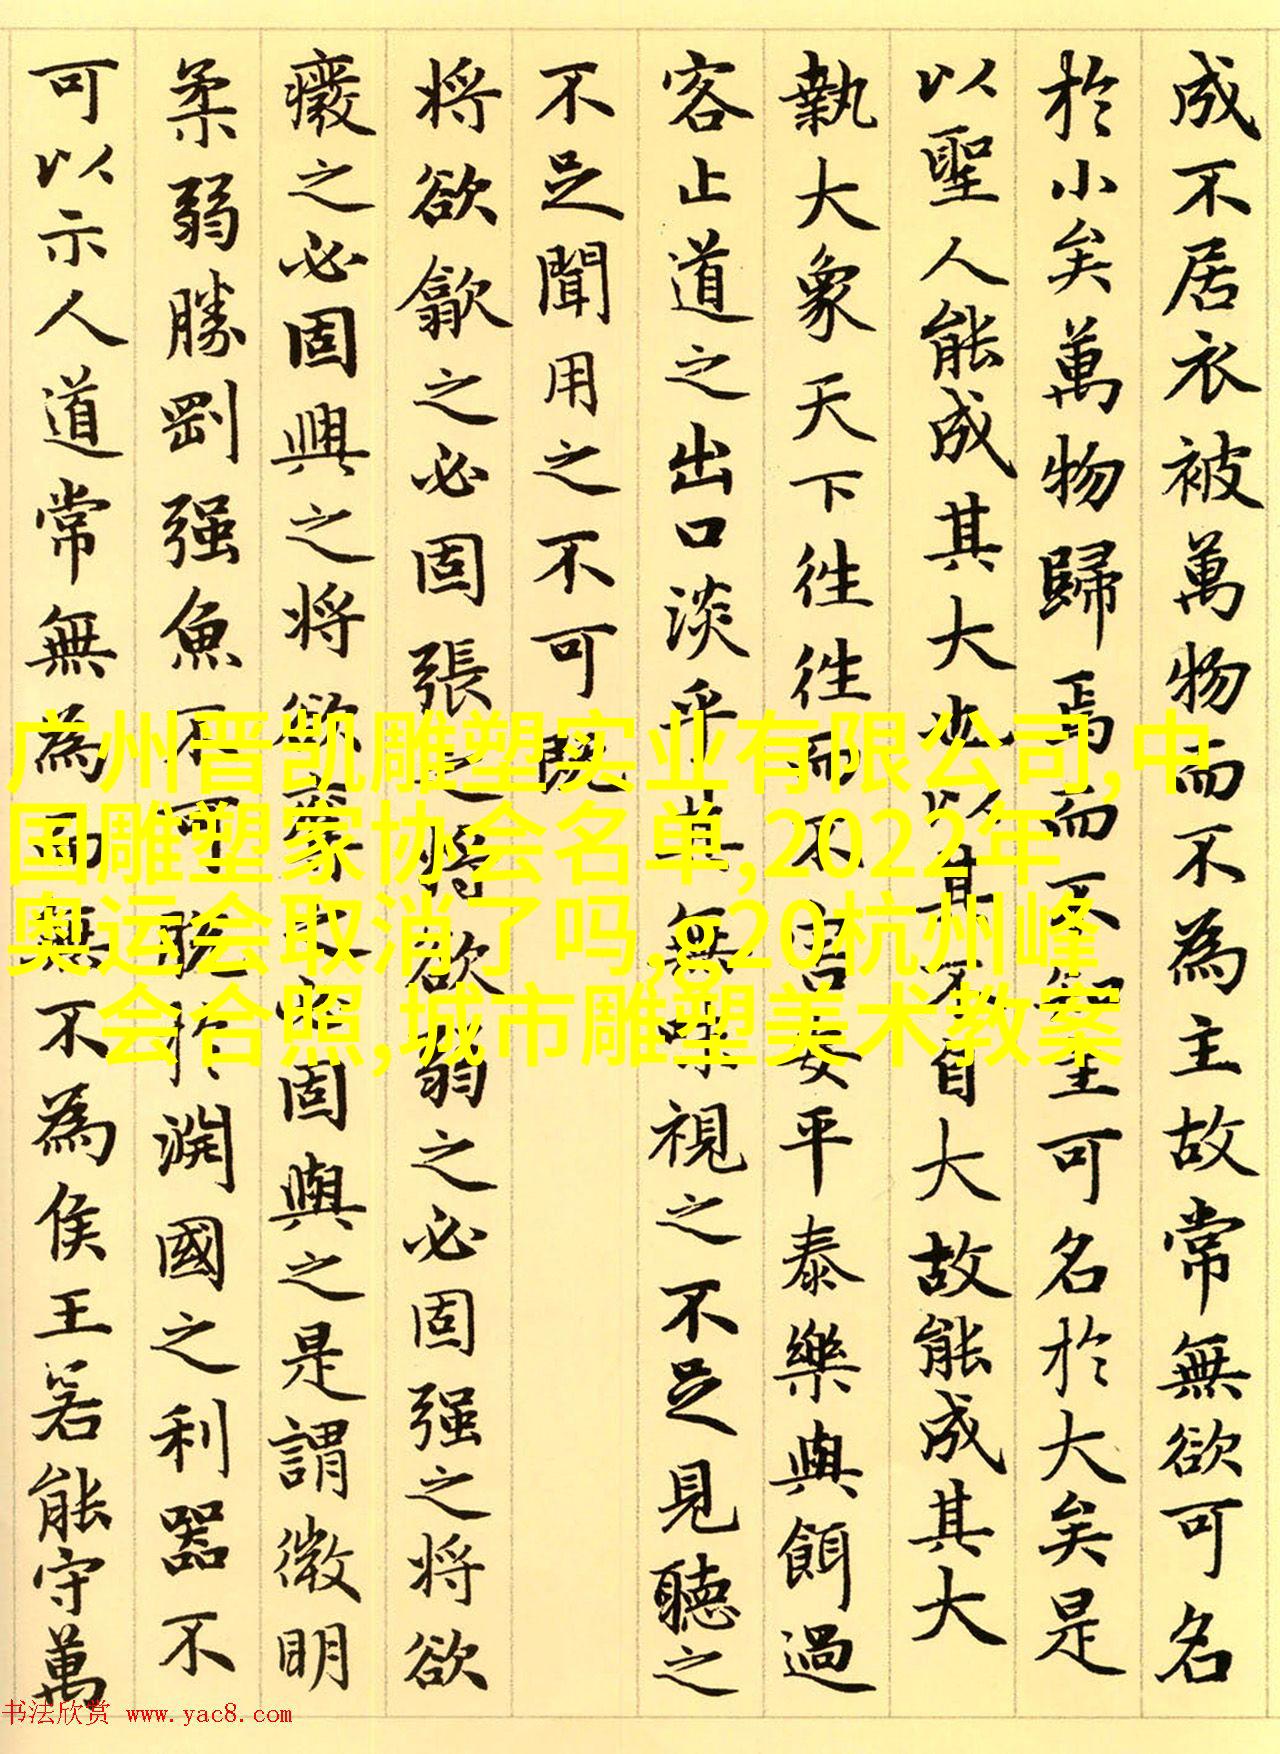 成不居衣被萬物而不為主故常無欲可名
於小矣萬物歸焉而不知主可名於大矣是
以聖人能成其大也以其不自大故能成其大
執大象天下徃徃而不害安平泰樂與餌過
客止道之出口淡乎其無味視之不足見聽之
不足聞用之不可既
将欲歙之必固張之将欲弱之必固强之将欲
癈之必固興之将欲奪之必固與之是謂微明
柔弱勝剛强魚不可脱於淵國之利器不
可以示人道常無為而無不為侯王若能守萬
广州晋凯雕塑实业有限公司,中
国雕塑家协会名单,2022年
奥运会取消了吗,g20杭州峰
会合照,城市雕塑美术教案
书法欣赏 www.yac8.com